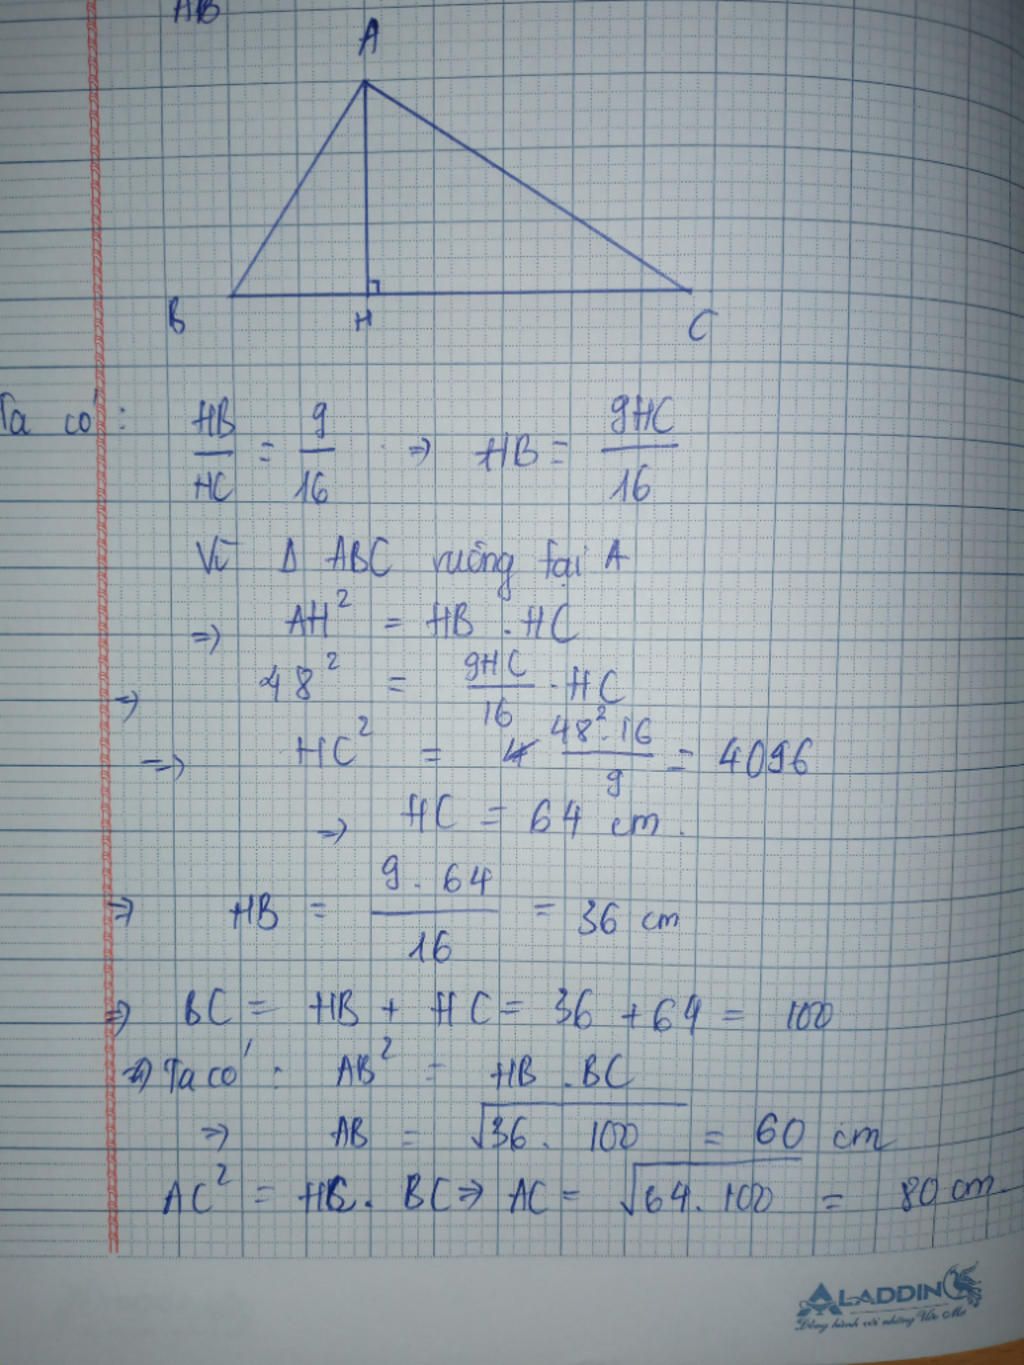 AB
A
B H C
Ta có: HB/HC = 9/16 ⇒ HB = 9HC/16
Vì Δ ABC vuông tại A
⇒ AH² = HB . HC
⇒ 48² = 9HC/16 . HC
⇒ HC² = 48².16/9 = 4096
⇒ HC = 64 cm.
⇒ HB = 9.64/16 = 36 cm
⇒ BC = HB + HC = 36 + 64 = 100
⇒ Ta có: AB² = HB . BC
⇒ AB = √36. 100 = 60 cm
AC² = HC. BC ⇒ AC = √64.100 = 80 cm.
ALADDIN
Đồng hành với những Ước Mơ